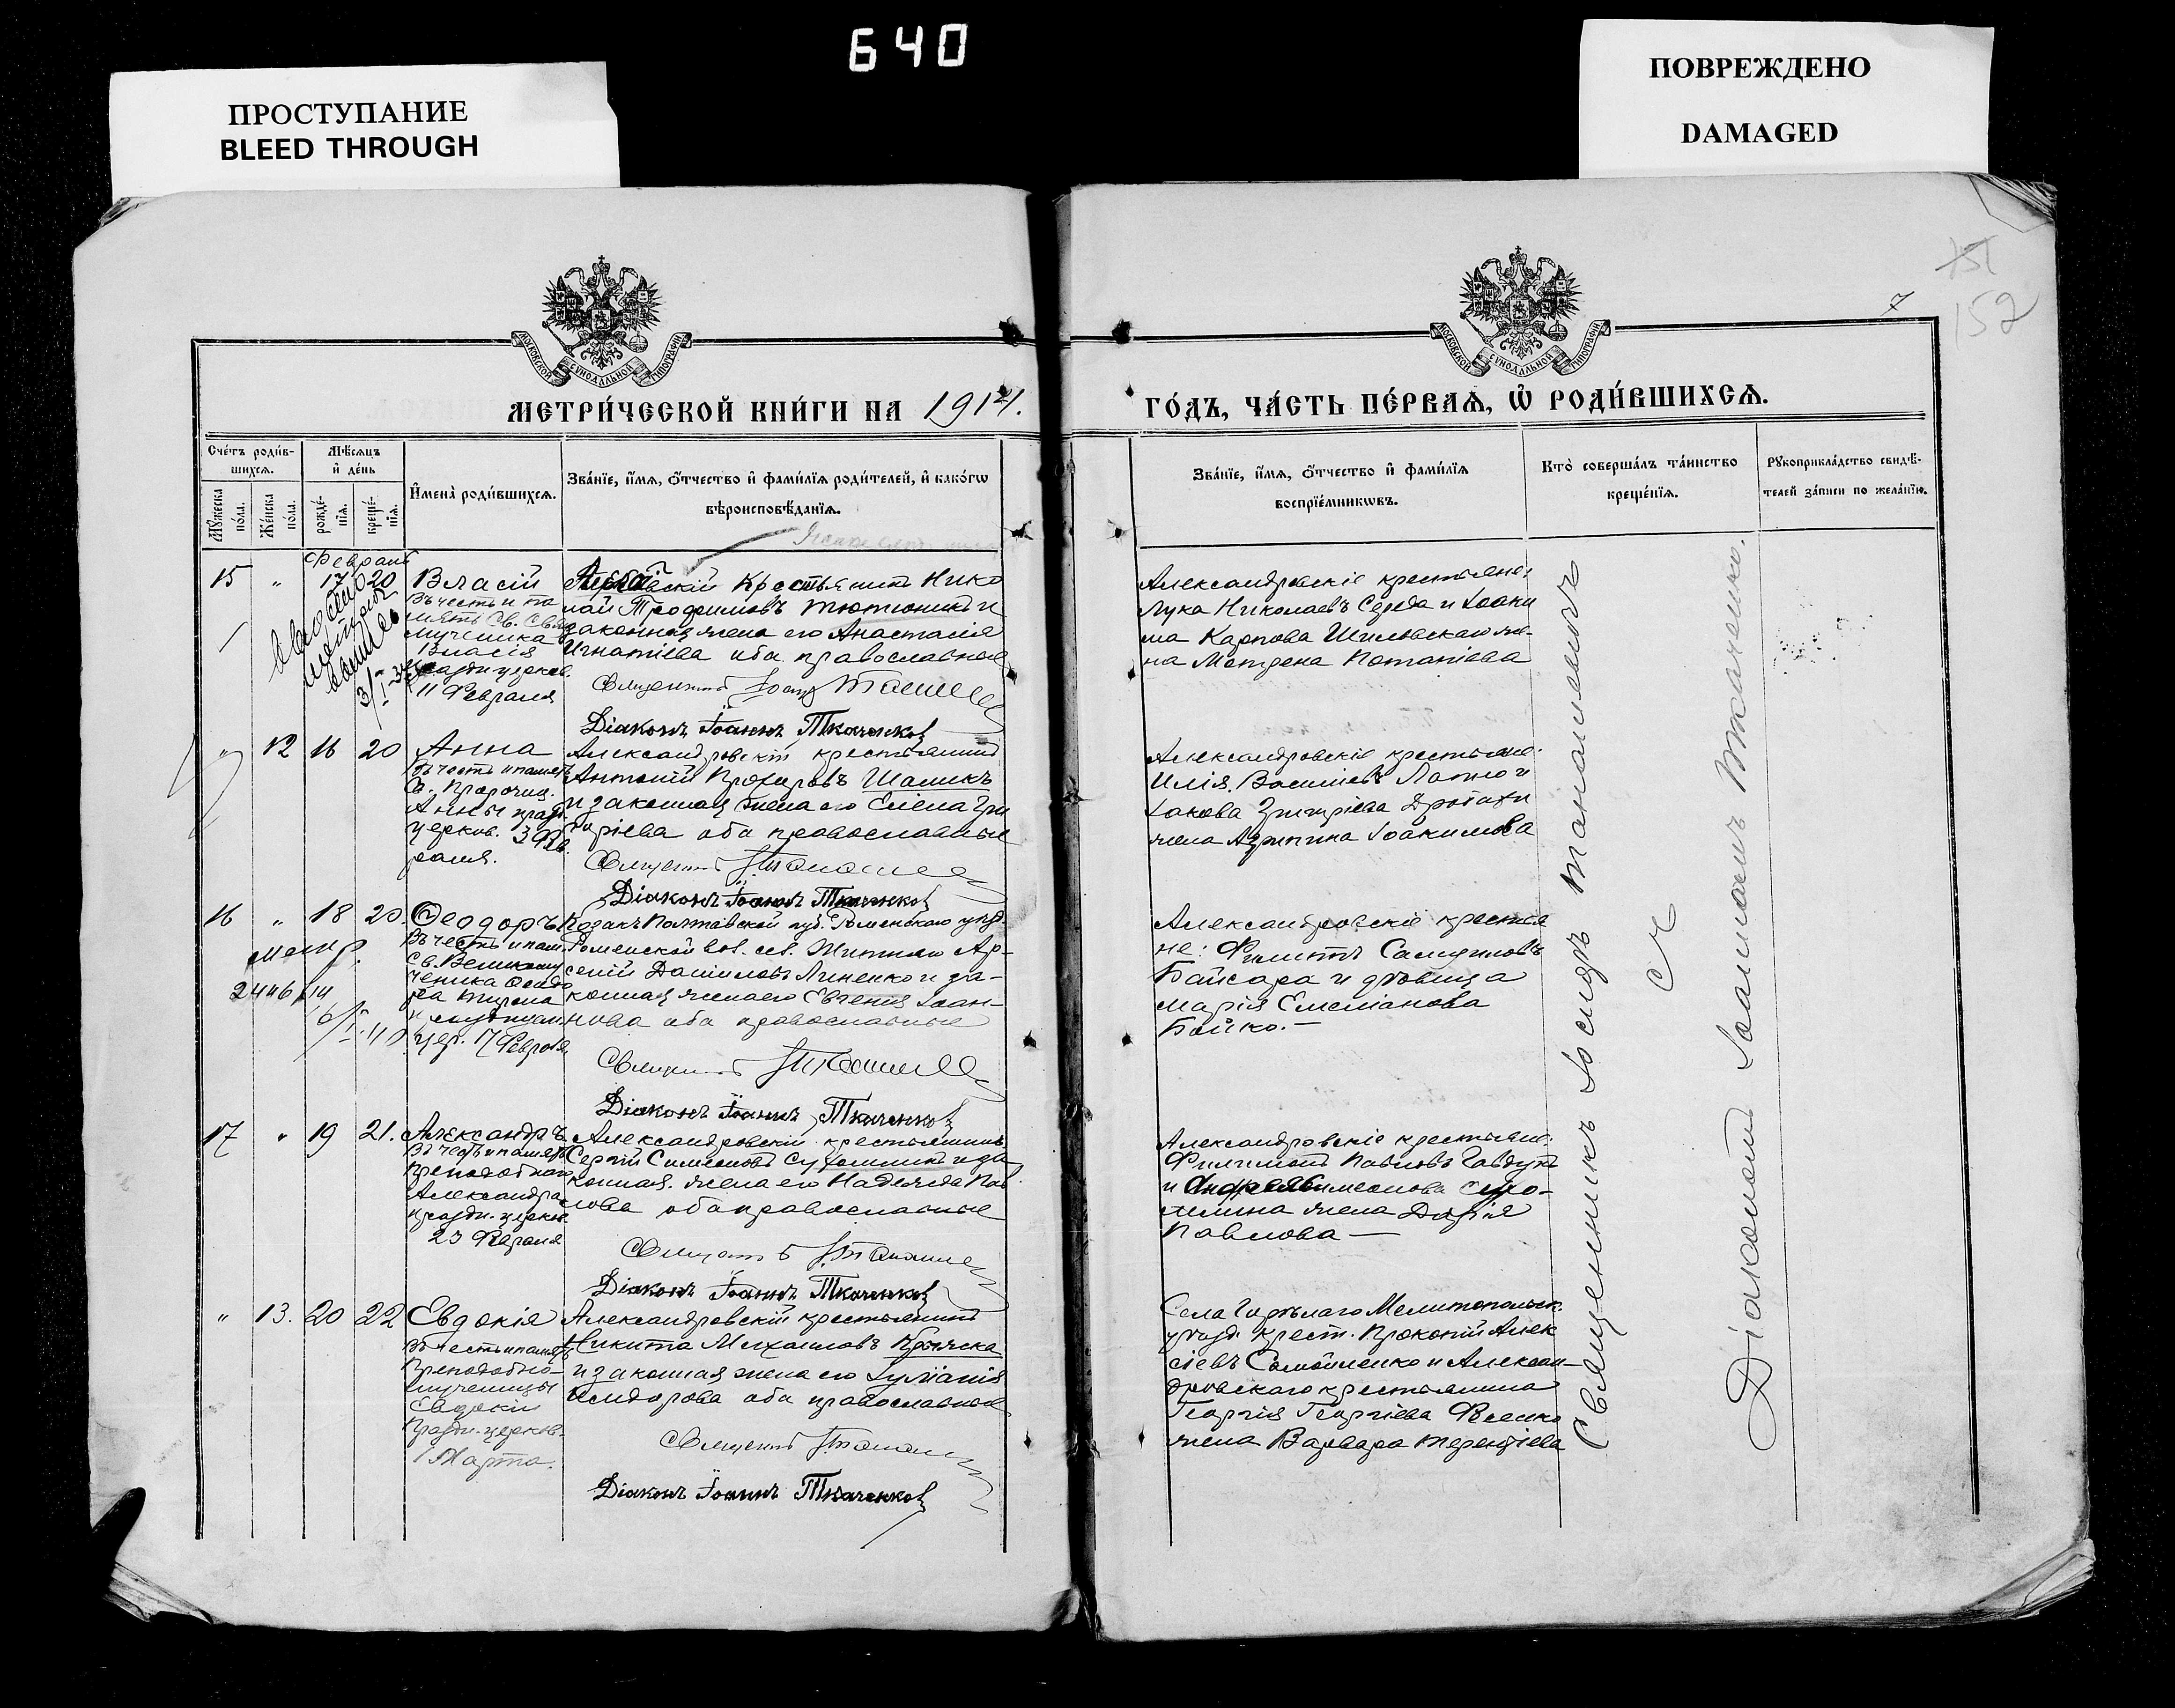 640
ПРОСТУПАНИЕ
BLEED THROUGH
ПОВРЕЖДЕНО
DAMAGED
152
7
МОСКОВСКОЙ СУНОДАЛЬНОЙ ТИПОГРАФІИ
МОСКОВСКОЙ СУНОДАЛЬНОЙ ТИПОГРАФІИ
МЕТРИ́ЧЕСКОЙ КНИ́ГИ НА 1914.
ГО́ДЪ, ЧА́СТЬ ПЕ́РВАѦ, Ѽ РОДИ́ВШИХСѦ.
Сче́тъ роди́в-
шихсѧ.
Мѣсѧцъ
и҆ де́нь
Мꙋ́жеска по́ла.
Же́нска по́ла.
рожде́-
нїѧ.
креще́-
нїѧ.
И҆мена̀ роди́вшихсѧ.
Зва́нїе, и҆́мѧ, ѻ҆́тчество и҆ фами́лїѧ роди́телей, и҆ како́гѡ
вѣроисповѣ́данїѧ.
Зва́нїе, и҆́мѧ, ѻ҆́тчество и҆ фами́лїѧ
воспрїе́мникѡвъ.
Кто̀ соверша́лъ та́инство
креще́нїѧ.
Рꙋкоприкла́дство свидѣ́-
телей за́писи по жела́нїю.
Февраль
15 " 17 20
Власій
Въ честь и па
мять Св. Свящ
мученика
Власія
праздн. церков.
11 Февраля
крестьянинъ Нико
лай Трофимовъ Тютюникъ и
законная жена его Анастасія
Игнатіева оба православные
Священникъ
Діаконъ Іоаннъ Ткаченко
Александровскіе крестьяне:
Лука Николаевъ Середа и Іоаки
ма Карпова Шиловскаго же-
на Матрена Потапіева
" 12 16 20
Анна
Въ честь и память
Св. Пророчиц.
Анны празд.
церков. 3 Фев
раля.
Александровскій крестьянинъ
Антоній Прохоровъ Шаликъ
и законная жена его Елена Гри
горіева оба православные
Священникъ
Діаконъ Іоаннъ Ткаченко
Александровскіе крестьяне:
Илія Василіевъ
Іакова Григоріева
жена Агрипина Іоакимова
16 " 18 20.
Ѳеодоръ
Въ честь и пам.
Св. Великому
ченика Ѳеодо
ра Тирона
цер. 17 Февраля
2446/14
Козакъ Полтавской губ. Роменскаго уѣзд.
Роменской вол. Ар-
сеній Даніиловъ Линенко и за-
конная жена его Евгенія Іоан-
нова оба православные
Священникъ
Діаконъ Іоаннъ Ткаченко
Александровскіе крестья
не: Филиппъ
Байсара и дѣвица
Марія Емеліанова
Бойко.—
17 " 19 21.
Александръ
Въ честь и память
Преподобнаго
Александра
праздн. церков.
23 Февраля
Александровскій крестьянинъ
Сергій Симеоновъ Сухомлинъ и за
конная жена его Надежда Пав
лова оба православные
Священникъ
Діаконъ Іоаннъ Ткаченко
Александровскіе крестьяне:
Филимонъ Павловъ
и Андрея Симеонова Сухо-
млина жена Дарія
Павлова —
" 13. 20 22
Евдокія
Въ честь и память
Преподобно-
мученицы
Евдокіи
Праздн. церков.
1 Марта.
Александровскій крестьянинъ
Никита Михаиловъ
и законная жена его Іуліанія
Исидорова оба православные
Священникъ
Діаконъ Іоаннъ Ткаченко
Села Мелитопольск.
уѣзд. крест. Прокопій Алек
сіевъ Самойленко и Алексан-
дровскаго крестьянина
Георгія Георгіева
жена Варвара Терентіева
Священникъ
съ
Діакономъ Іоанномъ Ткаченко.